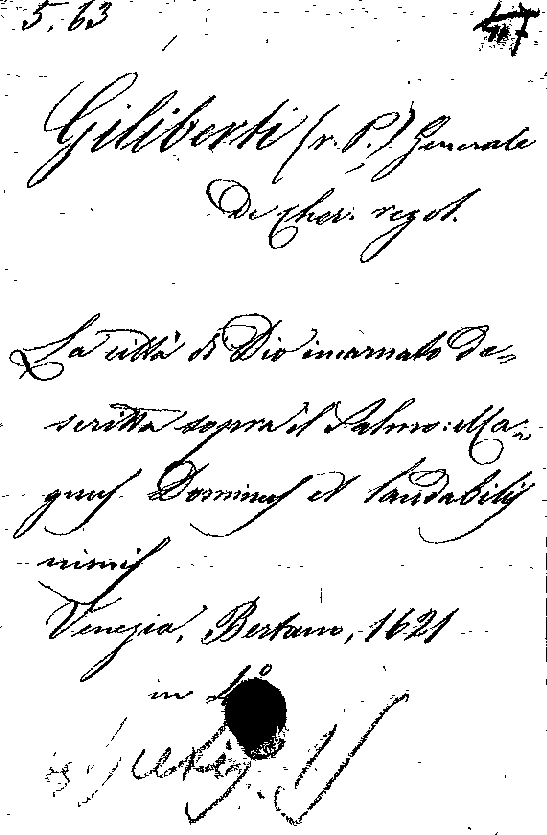 5. 63
Giliberti (r. P.) Generale
De Cher. regol.
La città di Dio incarnato de=
scritta sopra il Salmo: Ma=
gnus Dominus et laudabilis
nimis
Venezia, Bertano, 1621
in 4º